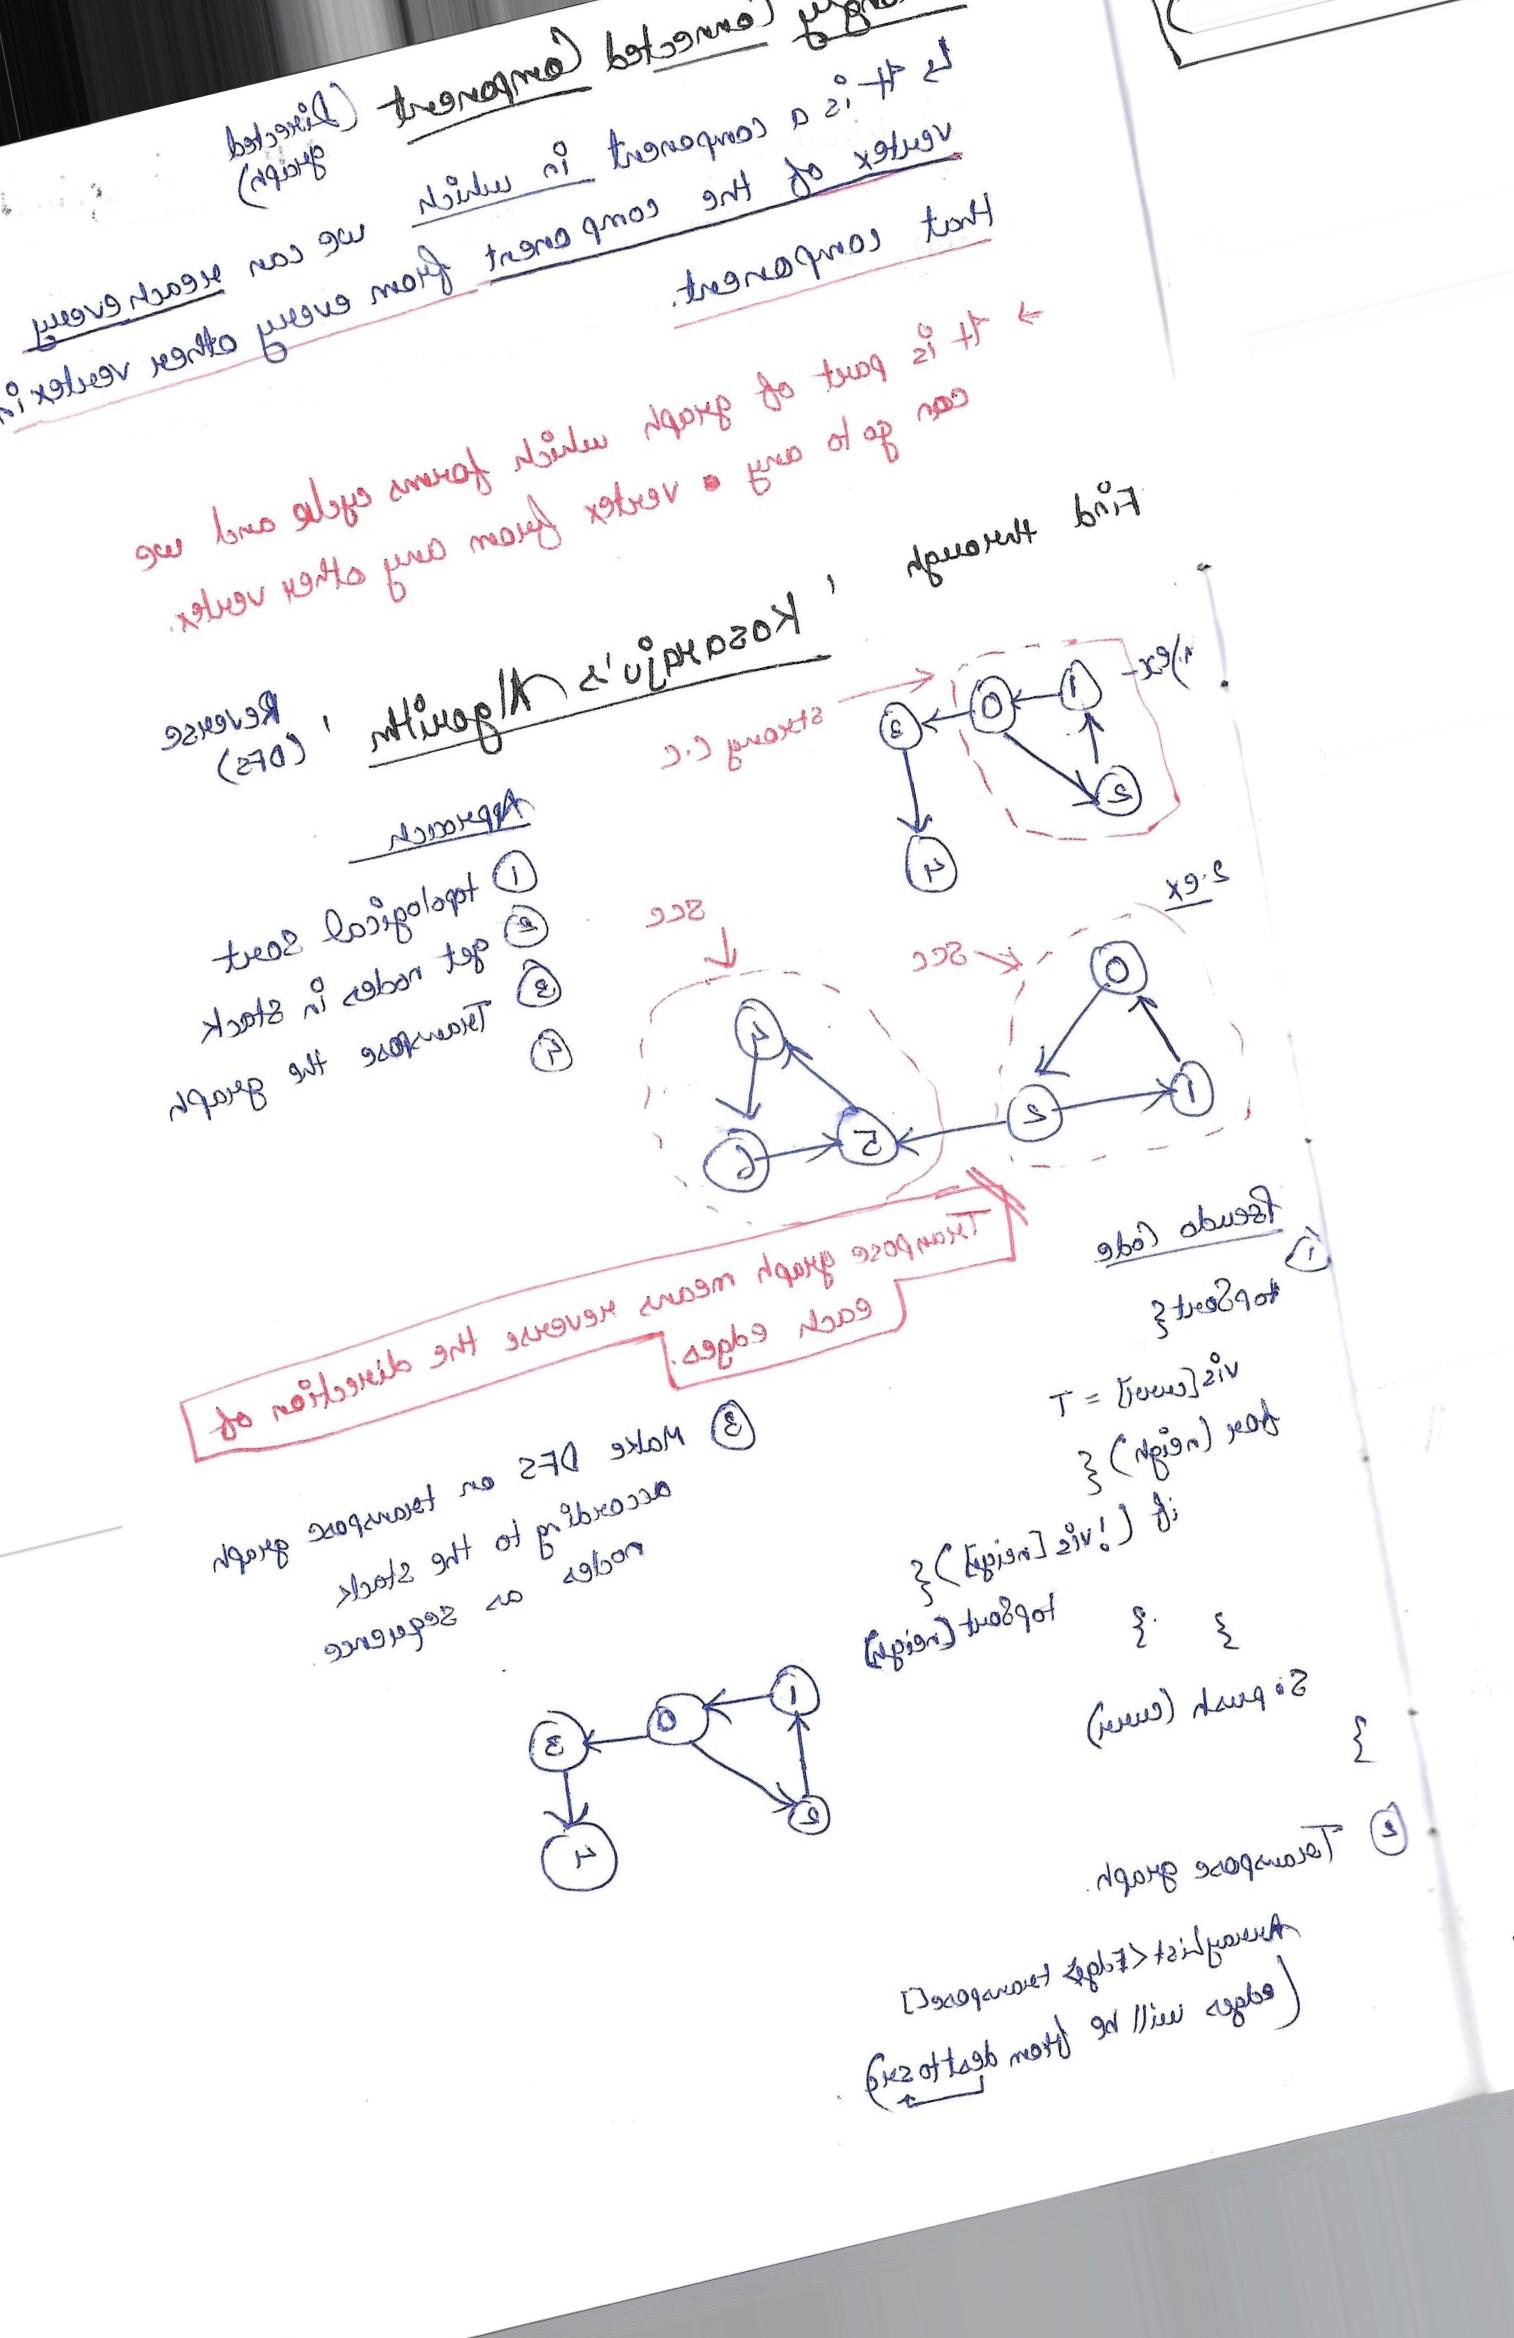 Connected Component (Directed graph)
↳ It is a component in which we can reach every
vertex of the component from every other vertex in
that component.
→ It is part of graph which forms cycle and we
can go to any vertex from any other vertex.
Find through
' Kosaraju's Algorithm ' Reverse
(DFS)
1. ex)
1
0
3
2
4
strong C.C
Approach
① topological sort
② get nodes in stack
③ Transpose the graph
④
2. ex
0
1
2
SCC
5
4
6
SCC
Transpose graph means reverse the direction of
each edges.
Pseudo Code
①
topSort{
vis[curr] = T
for (neigh) {
if (!vis[neigh]) {
topSort[neigh]
} }
S. push (curr)
}
② Transpose graph.
ArrayList<Edge> transpose[]
(edges will be from dest to src)
③ Make DFS on transpose graph
according to the stack
nodes as sequence
1
0
3
2
4